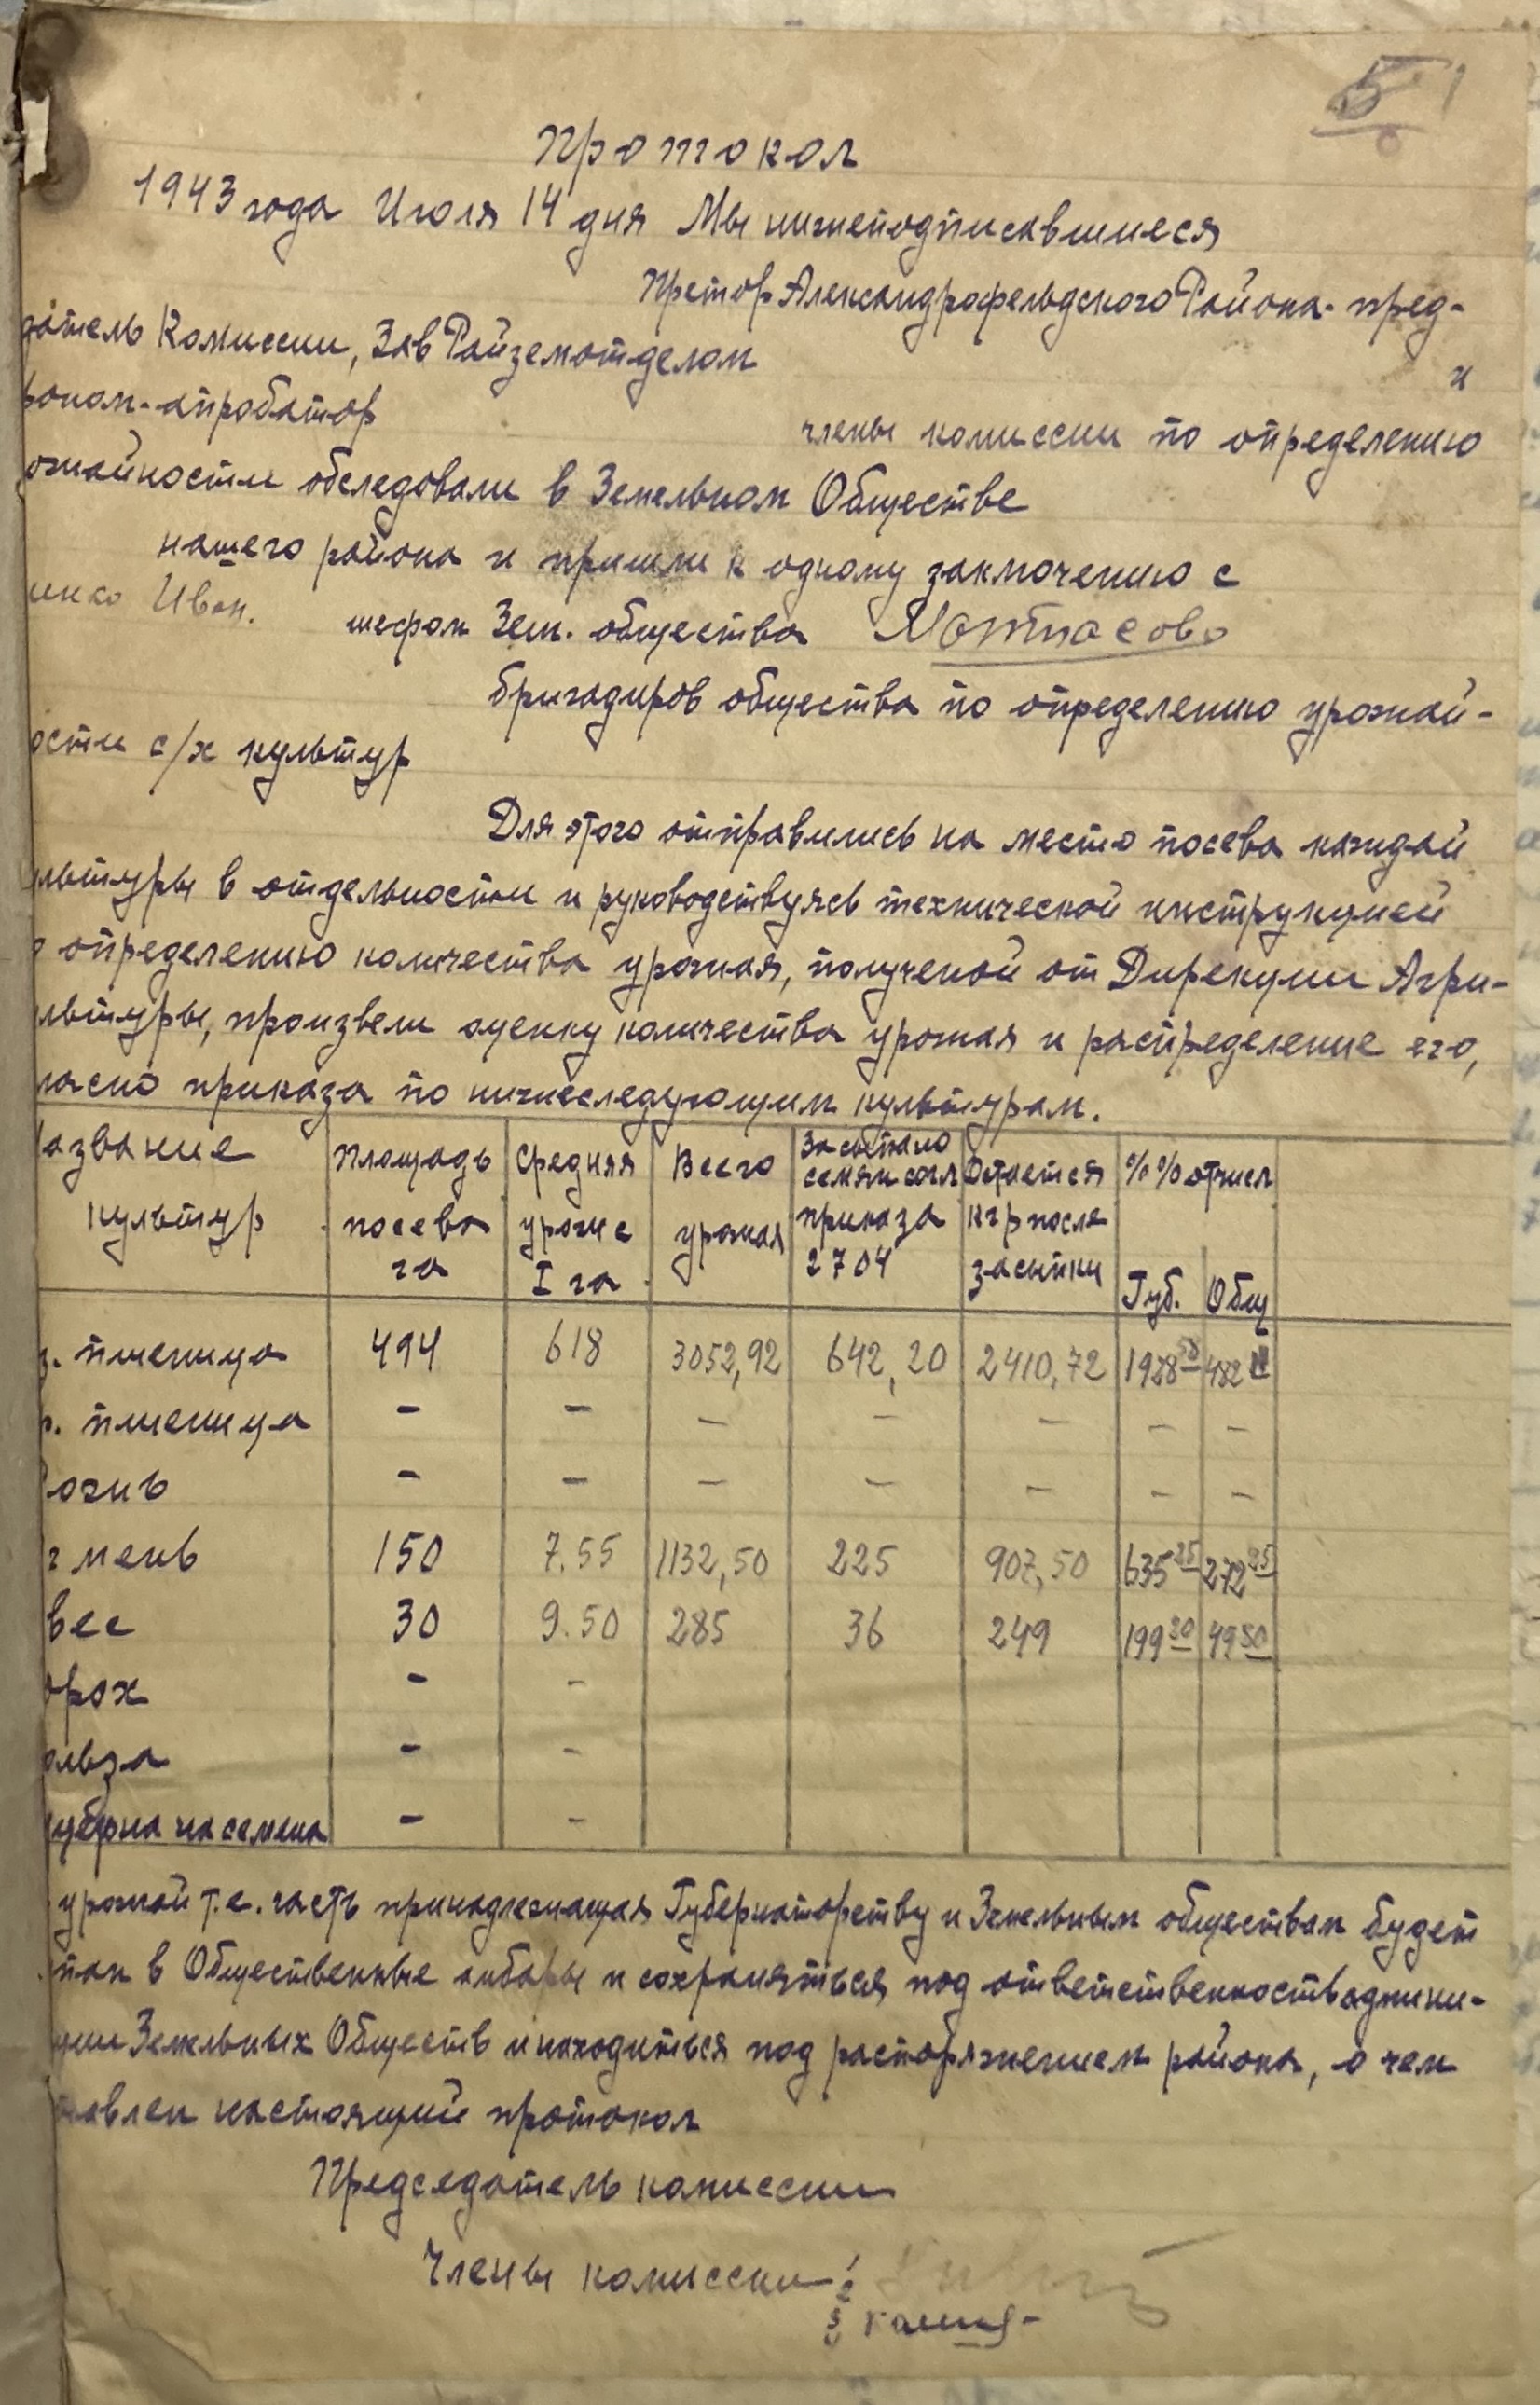 5
Протокол
1943 года Июля 14 дня Мы нижеподписавшиеся
Претор Александрофельдского Района - пред-
датель Комиссии, Зав Райземотделом
и
роном-апробатор
члены комиссии по определению
ожайности обследовали в Земельном Обществе
нашего района и пришли к одному заключению с
енко Иван.
шефом Зем. общества
бригадиров общества по определению урожай-
ости с/х культур
Для этого отправились на место посева каждой
льтуры в отдельности и руководствуясь технической инструкцией
о определению количества урожая, полученой от Дирекции Агри-
льтуры, произвели оценку количества урожая и распределение его,
ласно приказа по нижеследующим культурам.
азвание культур | площадь посева га | Средняя урож с I га | Всего урожая | Засыпано семян согл приказа 2704 | Остается кгр после засыпки | % % отчисл Губ. | Общ
з. пшеница 494 618 3052,92 642,20 2410,72 1928 58 482
р. пшеница - - - - - - -
Рожь - - - - - - -
чмень 150 7.55 1132,50 225 907,50 635 25 272 25
вес 30 9.50 285 36 249 199 20 49 80
орох - -
ольза - -
уцерна на семена - -
урожай т.е. часть принадлежащая Губернаторству и Земельным обществам будет
пан в Общественные амбары и сохраняться под ответственность админи-
ции Земельных Обществ и находиться под распоряжением района, о чем
тавлен настоящий протокол
Председатель комиссии
Члены комиссии 1
2
3